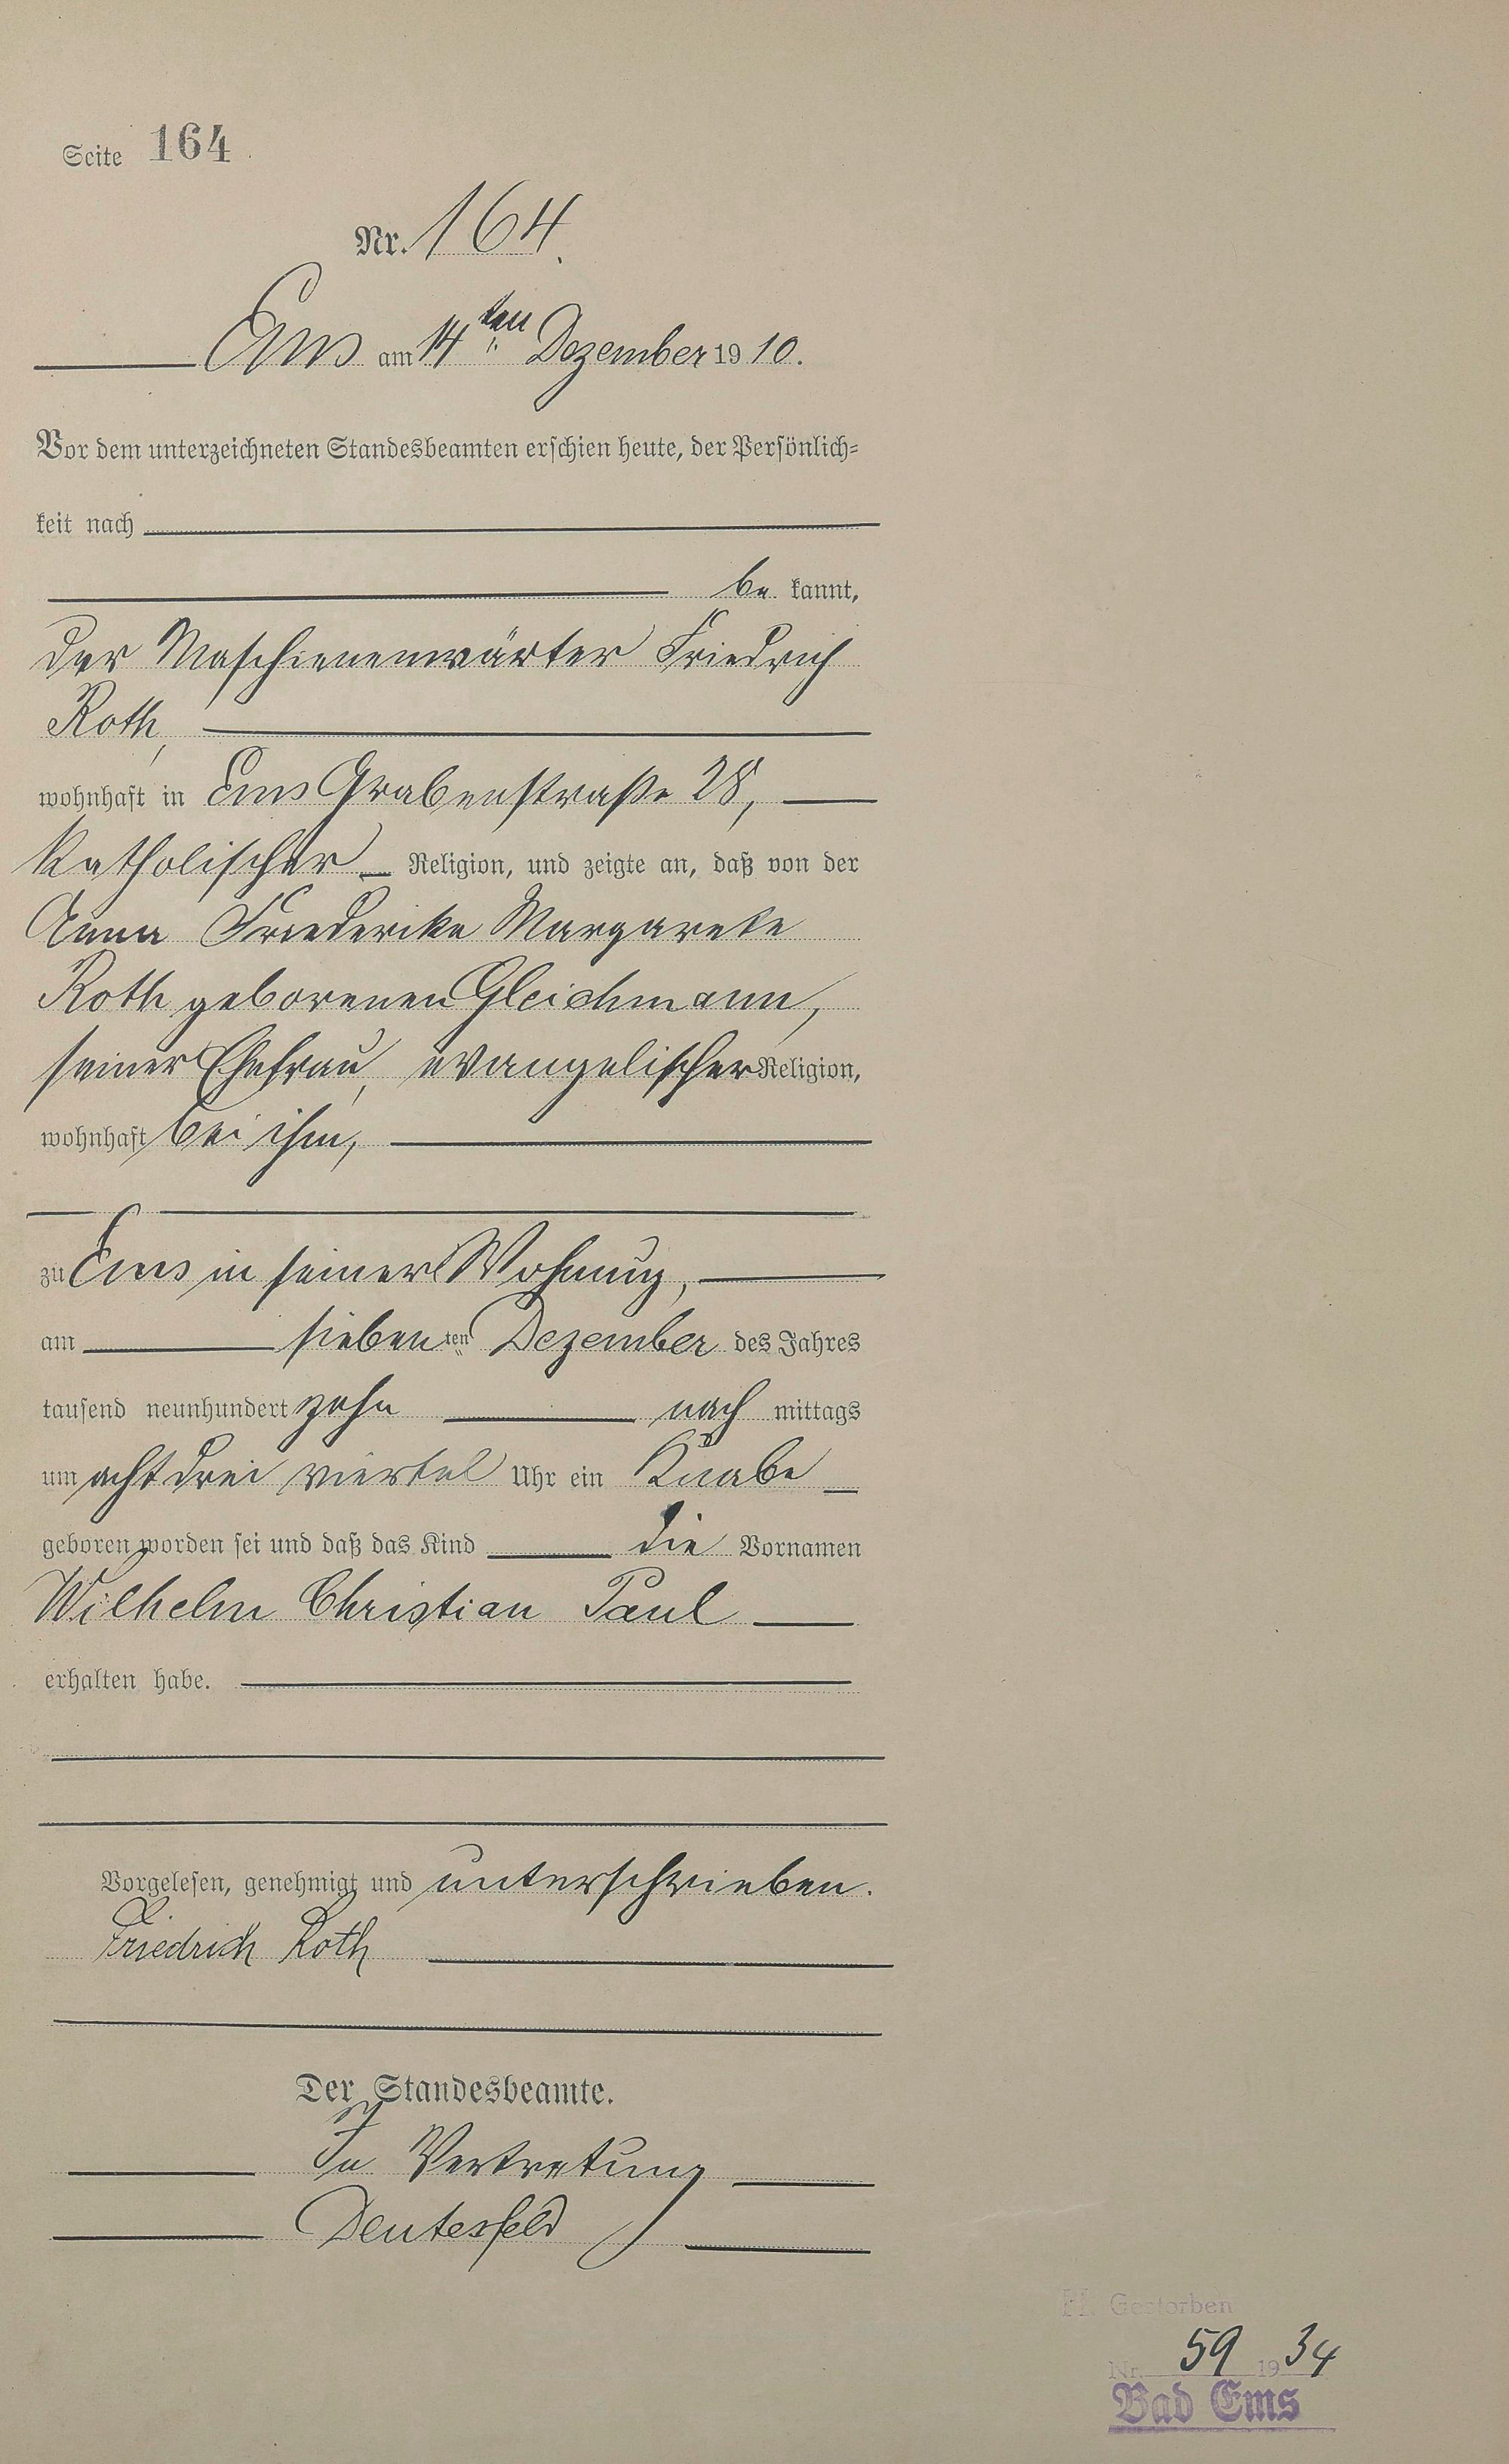 Seite 164
Nr. 164.
Ems am 14ten Dezember 1910.
Vor dem unterzeichneten Standesbeamten erschien heute, der Persönlich-
keit nach
be kannt,
der Maschienenwärter Friedrich
Roth,
wohnhaft in Ems Grabenstraße 28,
katholischer Religion, und zeigte an, daß von der
Anna Friederike Margarete
Roth geborenen Gleichmann,
seiner Ehefrau, evangelischer Religion,
wohnhaft bei ihm,
zu Ems in seiner Wohnung,
am siebenten Dezember des Jahres
tausend neunhundert zehn nach mittags
um acht drei viertel Uhr ein Knabe
geboren worden sei und daß das Kind die Vornamen
Wilhelm Christian Paul
erhalten habe.
Vorgelesen, genehmigt und unterschrieben.
Friedrich Roth
Der Standesbeamte.
In Vertretung
Deutesfeld
H. Gestorben
Nr. 59 1934
Bad Ems